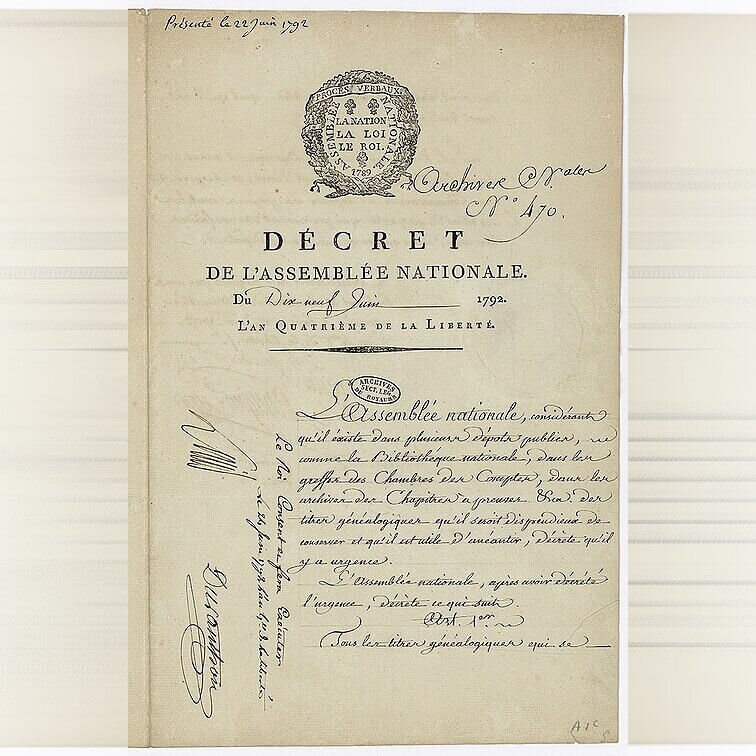 Présenté le 22 Juin 1792
PROCÈS VERBAUX
ASSEMBLÉE NATIONALE.
LA NATION
LA LOI
LE ROI.
1789
Archives Nales
N° 470.
DÉCRET
DE L'ASSEMBLÉE NATIONALE.
Du Dix neuf Juin 1792.
L'AN QUATRIÈME DE LA LIBERTÉ.
ARCHIVES
SECT. LEG.
DU ROYAUME
L'Assemblée nationale, considérant
qu'il existe dans plusieurs dépots publics,
comme la Bibliothèque nationale, dans les
greffes des Chambres des Comptes, dans les
archives des Chapitres a preuves &ca. des
titres généalogiques qu'il seroit dispendieux de
conserver et qu'il est utile d'anéantir, décrète qu'il
y a urgence.
L'Assemblée nationale, après avoir décrété
l'urgence, décrète ce qui suit.
Art. 1er.
Tous les titres généalogiques qui se
Le Roi Consent et fera Exécuter
le 24 Juin 1792 L'an 4e de la Liberté
Duranthon